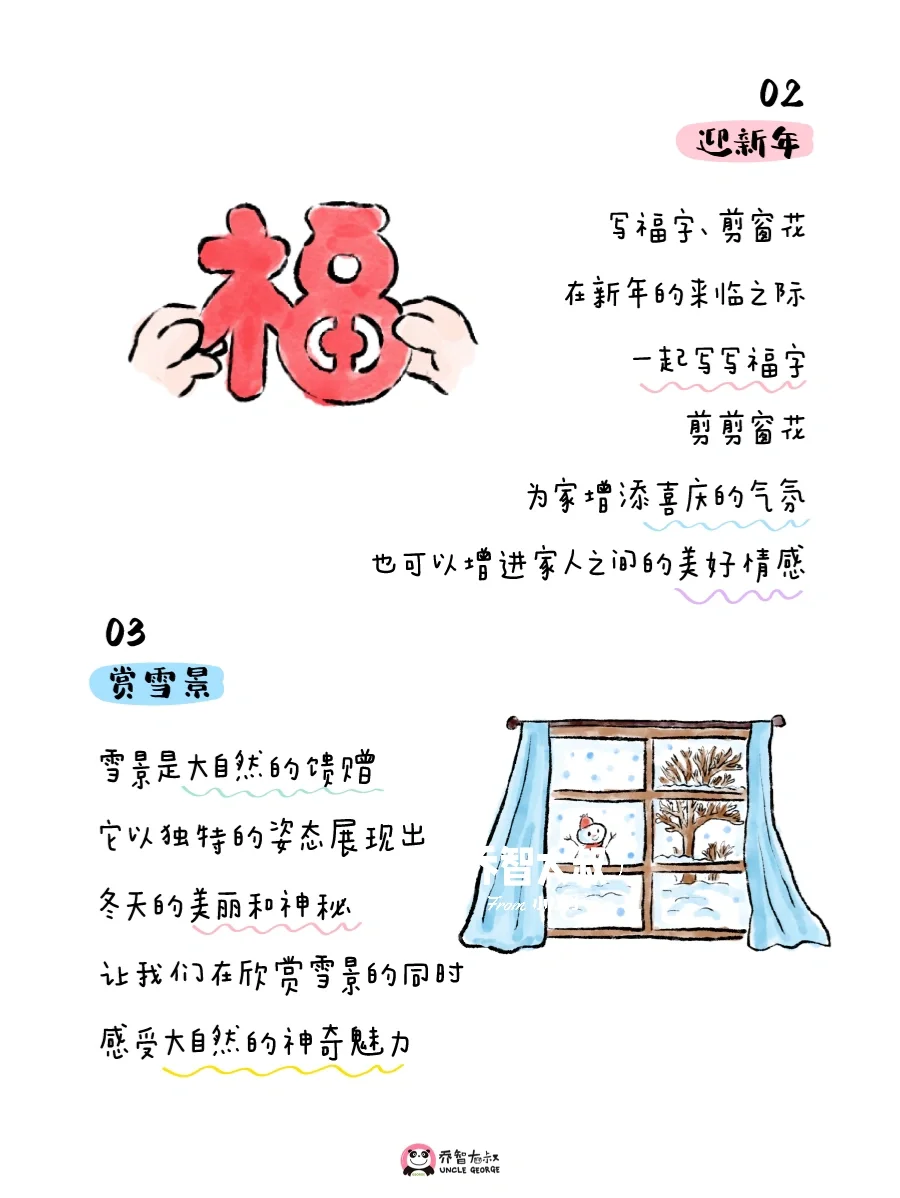 02
迎新年
写福字、剪窗花
在新年的来临之际
一起写写福字
剪剪窗花
为家增添喜庆的气氛
也可以增进家人之间的美好情感
福
03
赏雪景
雪景是大自然的馈赠
它以独特的姿态展现出
冬天的美丽和神秘
让我们在欣赏雪景的同时
感受大自然的神奇魅力
乔智大叔
From
乔智大叔
UNCLE GEORGE